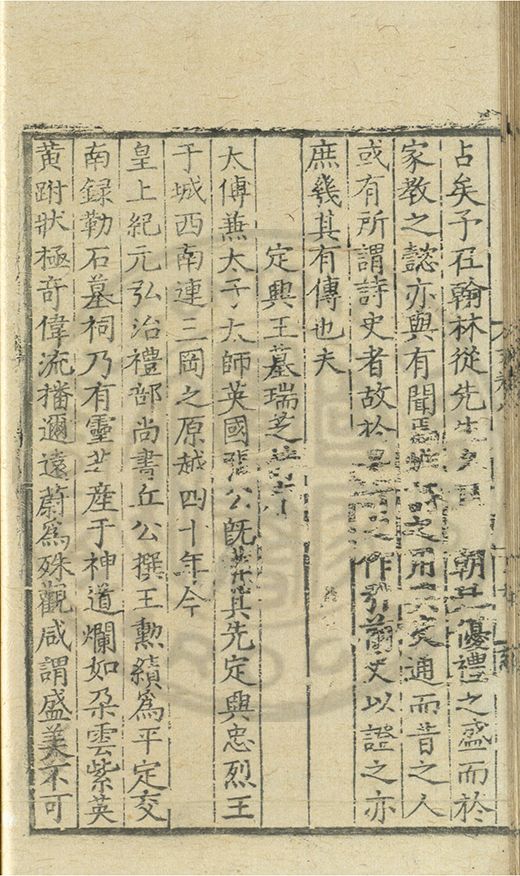 占矣予在翰林從先生 朝 優禮之盛而於
家教之懿亦與有聞焉 詩之用 交通而昔之人
或有所謂詩史者故於 之作引前史以證之亦
庶幾其有傳也夫
定興王墓瑞芝
太傅兼太子太師英國張公既葬其先定興忠烈王
于城西南連三岡之原越四十年今
皇上紀元弘治禮部尚書丘公撰王勲績為平定交
南録勒石墓祠乃有靈芝産于神道爛如朶雲紫英
黃跗狀極奇偉流播邇遠蔚為殊觀咸謂盛美不可